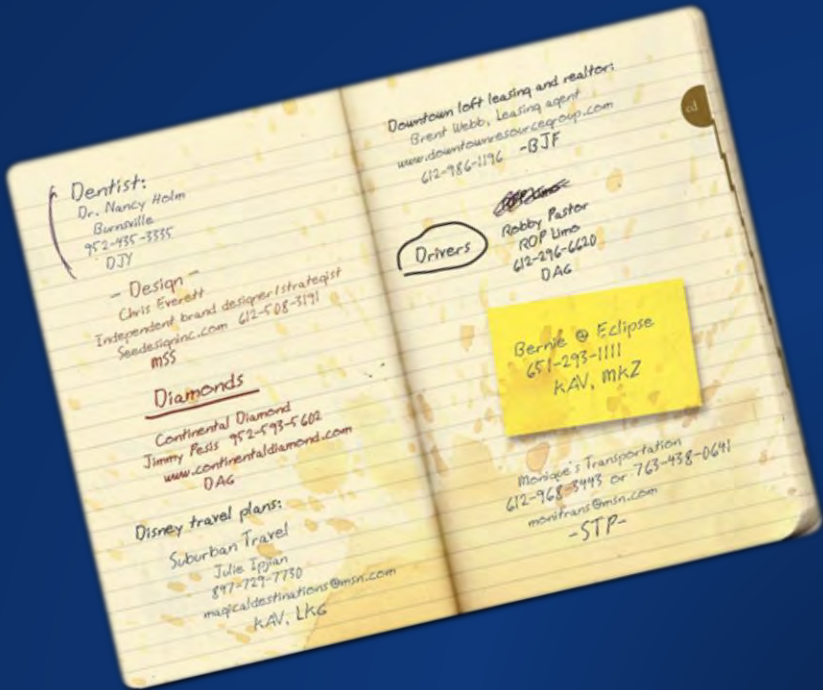 Dentist:
Dr. Nancy Holm
Burnsville
952-435-3335
DJY
- Design -
Chris Everett
Independent brand designer/strategist
Seedesigninc.com 612-508-3191
MSS
Diamonds
Continental Diamond
Jimmy Pesis 952-593-5602
www.continentaldiamond.com
DAG
Disney travel plans:
Suburban Travel
Julie Ipjian
897-729-7730
magicaldestinations@msn.com
KAV, LKG
cd
Downtown loft leasing and realtor:
Brent Webb, Leasing agent
www.downtownresourcegroup.com
612-986-1196 -BJF
Drivers
Robby Pastor
ROP Limo
612-296-6620
DAG
Bernie @ Eclipse
651-293-1111
KAV, MKZ
Monique's Transportation
612-968-3443 or 763-438-0641
monitrans@msn.com
-STP-